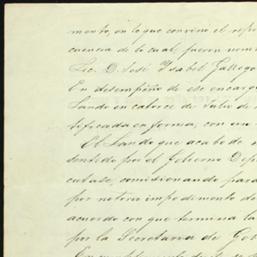 mento, en lo que convino el repre
cuencia de lo cual, fueron nom
Lic. D. José Ysabel Gallego
En desempeño de ese encargo
Lando en catorce de Julio de
tificada en forma, con un
El Laudo que acabo de
sentido por el Gobierno Dip
cutase, comisionando para
por notorio impedimento de
acuerdo con que termina la
por la Secretaria de Gob